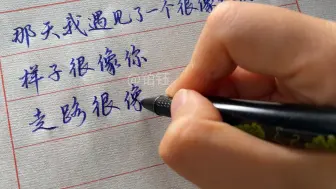 那天我遇见了一个很像你
样子很像你
走路很像